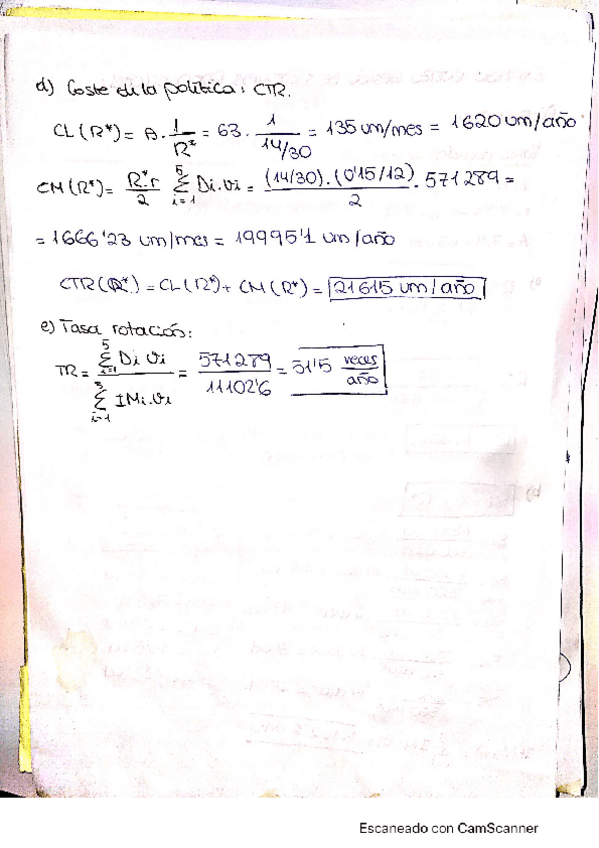 d) Coste de la política: CTR.
CL(R*) = A · 1/R* = 63 · 1/(14/30) = 135 um/mes = 1620 um/año
CM(R*) = R*·r/2 5∑i=1 Di·vi = (14/30)·(0'15/12)/2 · 571289 =
= 1666'23 um/mes = 19995'1 um/año
CTR(R*) = CL(R*) + CM(R*) = 21615 um/año
e) Tasa rotación:
TR = 5∑i=1 Di vi / 5∑i=1 IMi·vi = 571289/11102'6 = 51'5 veces/año
Escaneado con CamScanner